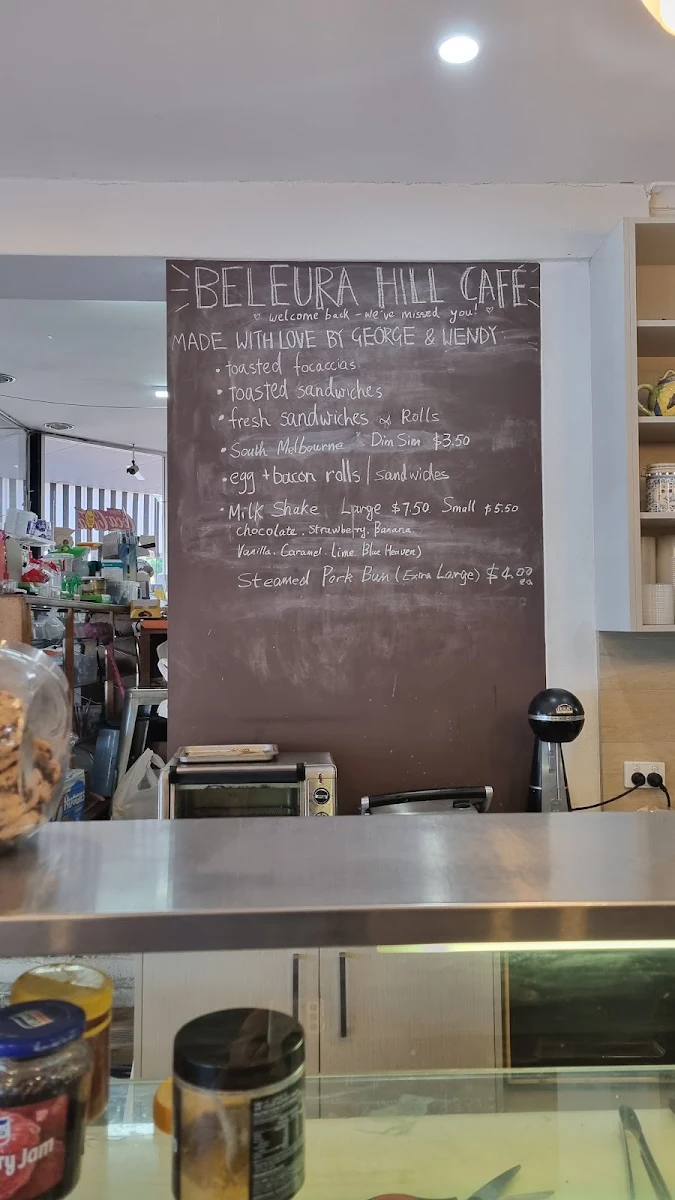 BELEURA HILL CAFÉ
♡ welcome back - we've missed you! ♡
MADE WITH LOVE BY GEORGE & WENDY
• toasted focaccias
• toasted sandwiches
• fresh sandwiches & Rolls
• South Melbourne Dim Sim $3.50
• egg + bacon rolls | sandwiches
• Milk Shake Large $7.50 Small $5.50
chocolate. Strawberry. Banana.
Vanilla. Caramel. Lime. Blue Heaven)
Steamed Pork Bun (Extra Large) $4.00 ea
ry Jam